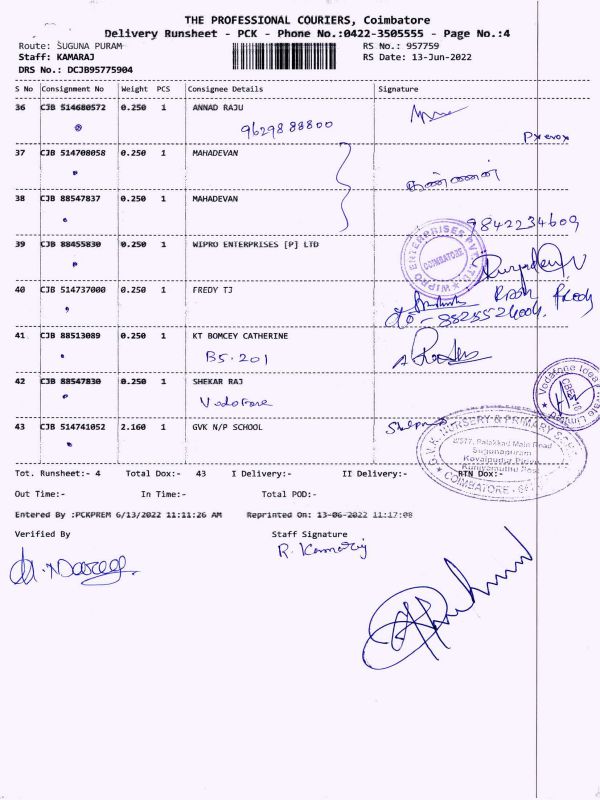 THE PROFESSIONAL COURIERS, Coimbatore
Delivery Runsheet - PCK - Phone No.:0422-3505555 - Page No.:4
Route: SUGUNA PURAM RS No.: 957759
Staff: KAMARAJ RS Date: 13-Jun-2022
DRS No.: DCJB95775904
S No Consignment No Weight PCS Consignee Details Signature
36 CJB 514680572 0.250 1 ANNAD RAJU
9629888800
37 CJB 514708058 0.250 1 MAHADEVAN
கண்ணன்
38 CJB 88547837 0.250 1 MAHADEVAN
9842234609
39 CJB 88455830 0.250 1 WIPRO ENTERPRISES [P] LTD
WIPRO ENTERPRISES PVT LTD
COIMBATORE
40 CJB 514737000 0.250 1 FREDY TJ
41 CJB 88513089 0.250 1 KT BOMCEY CATHERINE
B5-201
42 CJB 88547830 0.250 1 SHEKAR RAJ
Vodofone
43 CJB 514741052 2.160 1 GVK N/P SCHOOL
G.V.K. NURSERY & PRIMARY
Palakkad Main Road
Sugunapuram
COIMBATORE
Tot. Runsheet:- 4 Total Dox:- 43 I Delivery:- II Delivery:- RTN Dox:-
Out Time:- In Time:- Total POD:-
Entered By :PCKPREM 6/13/2022 11:11:26 AM Reprinted On: 13-06-2022 11:17:08
Verified By Staff Signature
R. Kamaraj